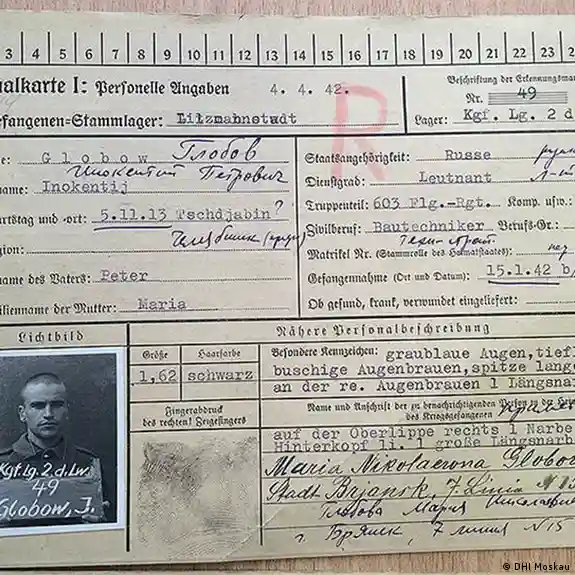 3 4 5 6 7 8 9 10 11 12 13 14 15 16 17 18 19 20 21 22 23
nalkarte I: Personelle Angaben 4. 4. 42.
Beschriftung der Erkennungsmar
Nr. 49
efangenen=Stammlager: Litzmannstadt
Lager: Kgf. Lg. 2 d
R
e: Globow Глобов
Иннокентий Петрович
name: Inokentij
urtstag und =ort: 5.11.13 Tschdjabin?
gion:
name des Vaters: Peter
ilienname der Mutter: Maria
Staatsangehörigkeit: Russe
Dienstgrad: Leutnant
Truppenteil: 603 Flg.-Rgt. Komp. usw.:
Zivilberuf: Bautechniker Berufs-Gr.:
Matrikel Nr. (Stammrolle des Heimatstaates):
Gefangennahme (Ort und Datum): 15.1.42 b/
Ob gesund, krank, verwundet eingeliefert:
Lichtbild
Nähere Personalbeschreibung
Größe Haarfarbe
1,62 schwarz
Besondere Kennzeichen: graublaue Augen, tiefl
buschige Augenbrauen, spitze lang
an der re. Augenbrauen 1 Längsnar
Fingerabdruck
des rechten! Zeigefingers
Name und Anschrift der zu benachrichtigenden Person in der
des Kriegsgefangenen
auf der Oberlippe rechts 1 Narbe
Hinterkopf li. 1 große Längsnarb
Maria Nikolaewna Globow
Stadt Brjansk, 7. Linia N 15
Глобова Мария Николаевна
г. Брянск, 7 линия N 15
Kgf. Lg. 2. d. Lw.
49
Globow, J.
© DHI Moskau